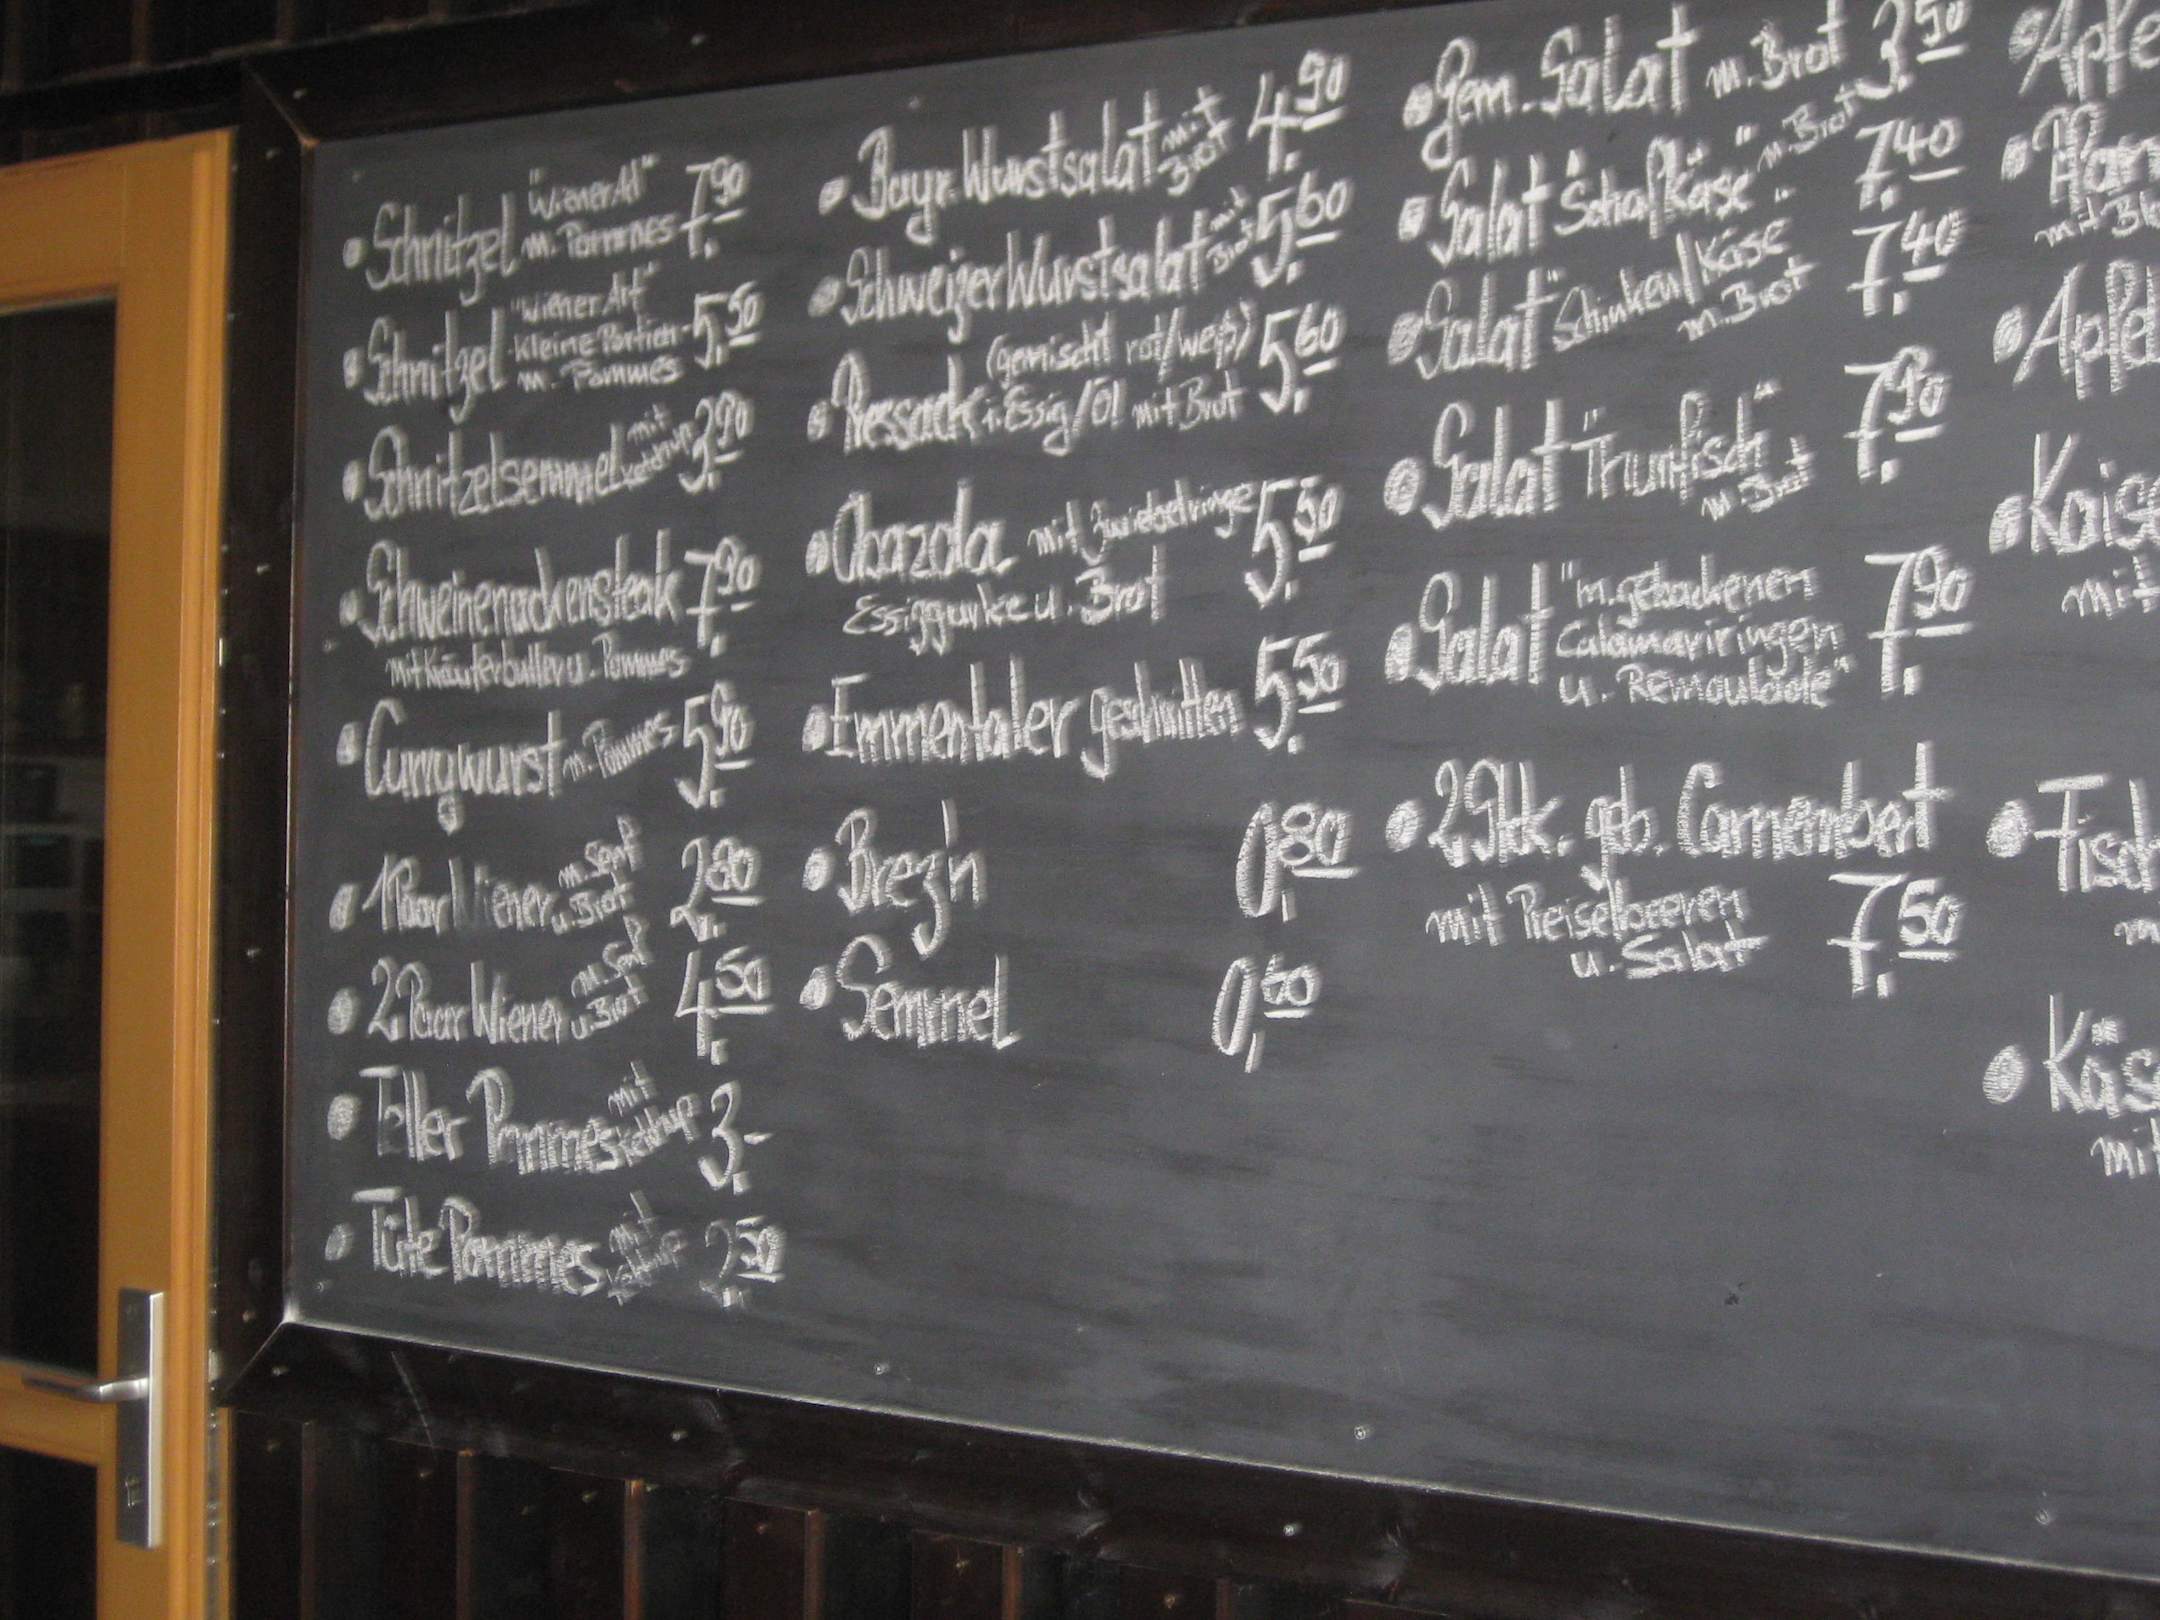 • Schnitzel "Wiener Art" m. Pommes 7.90
• Schnitzel "Wiener Art" kleine Portion m. Pommes 5.50
• Schnitzelsemmel mit Ketchup 3.90
• Schweinenackensteak 7.90
mit Kräuterbutter u. Pommes
• Currywurst m. Pommes 5.90
• 1 Paar Wiener m. Senf u. Brot 2.80
• 2 Paar Wiener m. Senf u. Brot 4.50
• Teller Pommes mit Ketchup 3.-
• Tüte Pommes mit Ketchup 2.50
• Bayr. Wurstsalat mit Brot 4.90
• Schweizer Wurstsalat mit Brot 5.60
(gemischt rot/weiß)
• Pressack i. Essig/Öl mit Brot 5.60
• Obazda mit Zwiebelringe 5.50
Essiggurke u. Brot
• Emmentaler geschnitten 5.50
• Brez'n 0,80
• Semmel 0,60
• Gem. Salat m. Brot 3.50
• Salat "Schafkäse" m. Brot 7.40
• Salat "Schinken/Käse" m. Brot 7.40
• Salat "Thunfisch" m. Brot 7.90
• Salat "m. gebackenen 7.90
Calamariringen
u. Remoulade"
• 2 Stk. geb. Camembert
mit Preiselbeeren 7.50
u. Salat
• Apfe
mit
• Apfel
• Kais
mit
• Fisch
m
• Käs
mit